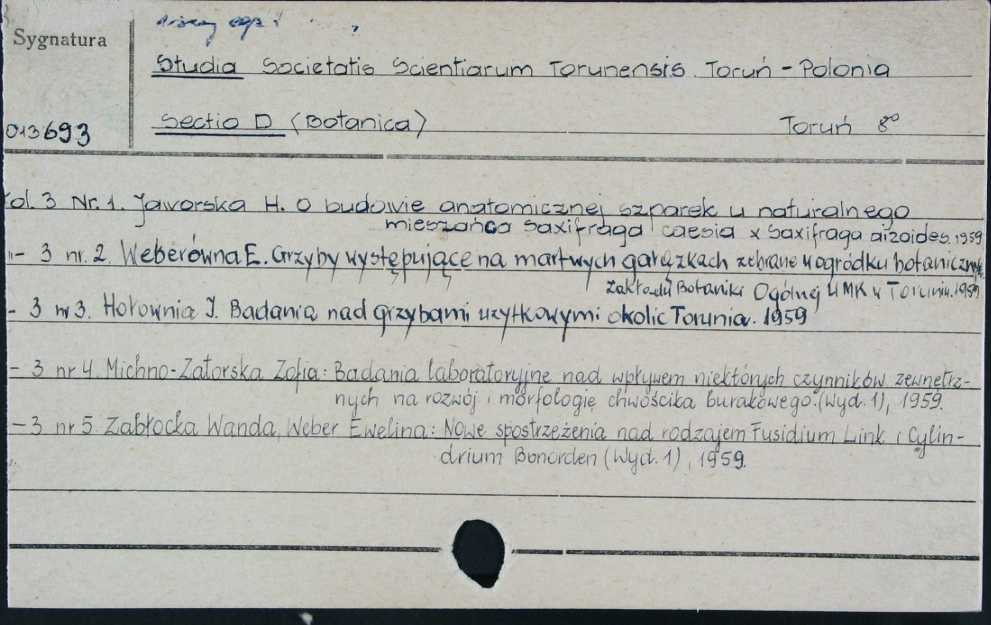 Sygnatura
Studia Societatis Scientiarum Torunensis. Toruń - Polonia
013693
Sectio D (Botanica) Toruń 8°
ol. 3 Nr. 1. Jaworska H. O budowie anatomicznej szparek u naturalnego
mieszańca Saxifraga caesia x Saxifraga aizoides. 1959
"- 3 nr. 2. Weberówna E. Grzyby występujące na martwych gałązkach zebrane w ogródku botaniczn.
Zakładu Botaniki Ogólnej UMK w Toruniu. 1959
- 3 nr 3. Hołownia J. Badania nad grzybami użytkowymi okolic Torunia. 1959
- 3 nr 4. Michno-Zatorska Zofia: Badania laboratoryjne nad wpływem niektórych czynników zewnętrz-
nych na rozwój i morfologię chwościka burakowego. (Wyd. 1), 1959.
- 3 nr 5 Zabłocka Wanda, Weber Ewelina: Nowe spostrzeżenia nad rodzajem Fusidium Link i Cylin-
drium Bonorden (Wyd. 1), 1959.